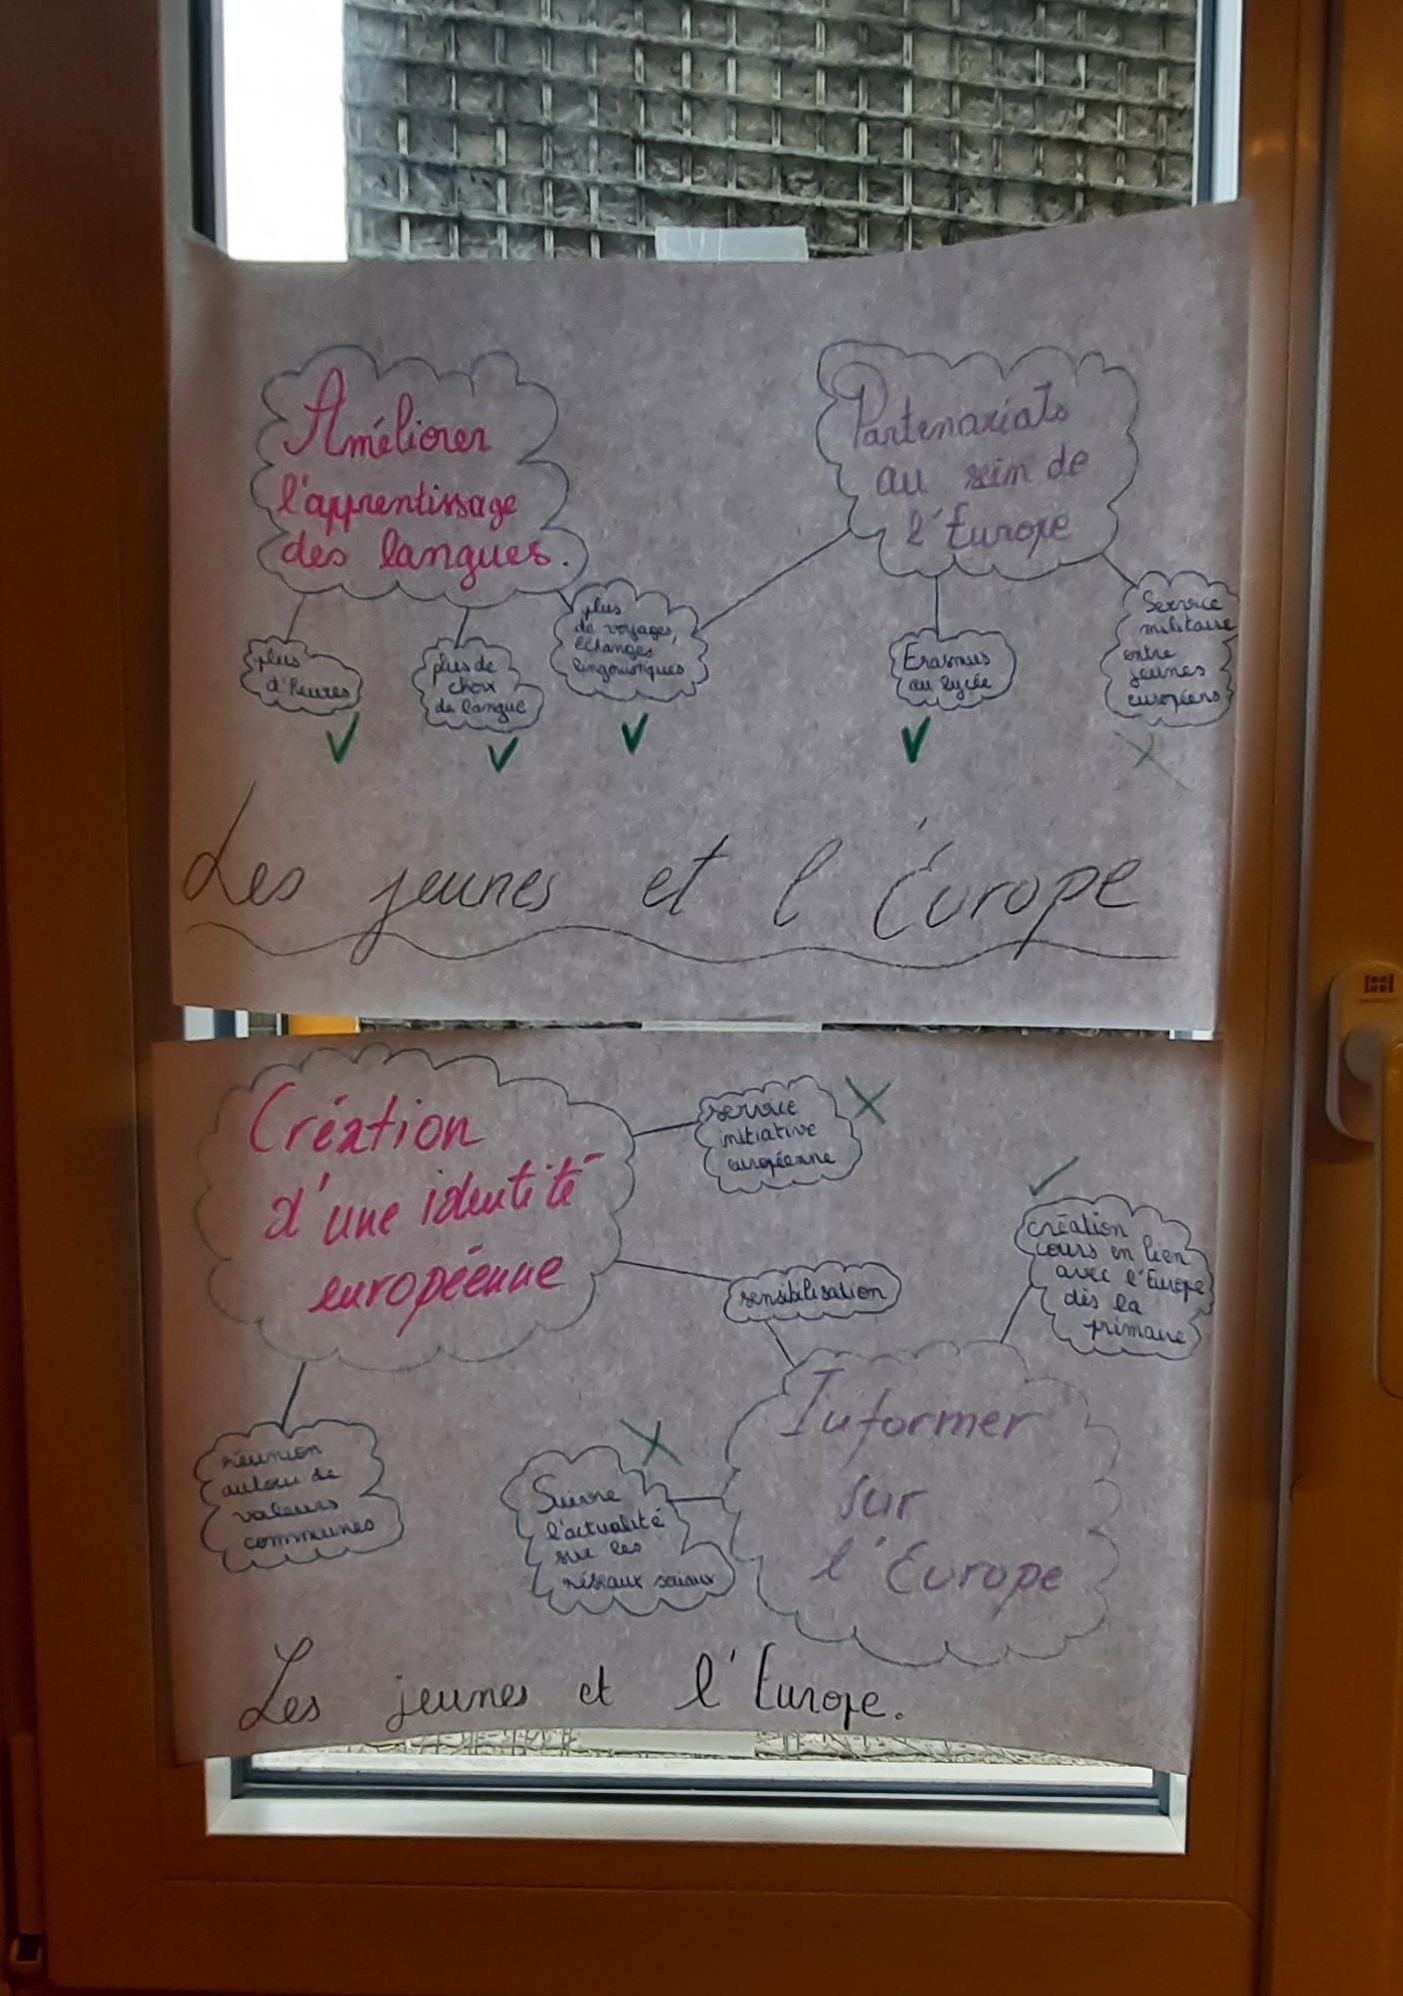 Améliorer
l'apprentissage
des langues.
Partenariats
au sein de
l'Europe
plus
d'heures
plus de
choix
de langue
plus
de voyages,
échanges
linguistiques
Erasmus
au lycée
Service
militaire
entre
jeunes
européens
Les jeunes et l'Europe
Création
d'une identité
européenne
service
initiative
européenne
sensibilisation
création
cours en lien
avec l'Europe
dès la
primaire
réunion
autour de
valeurs
communes
Suivre
l'actualité
sur les
réseaux sociaux
Informer
sur
l'Europe
Les jeunes et l'Europe.